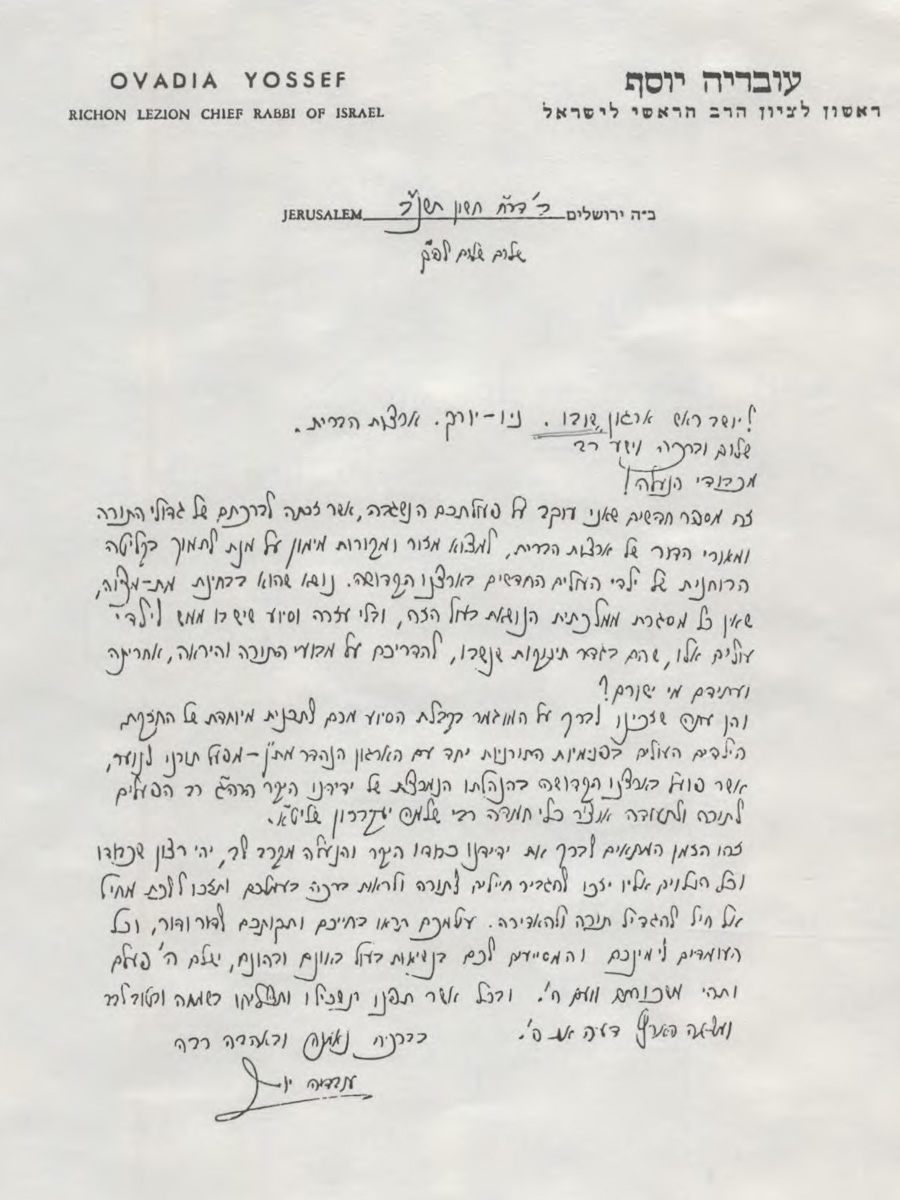 OVADIA YOSSEF
RICHON LEZION CHIEF RABBI OF ISRAEL
עובדיה יוסף
ראשון לציון הרב הראשי לישראל
JERUSALEM ב' דר"ח חשון תשנ"ב ב"ה ירושלים
שלום שלום לפ"ק
ליושר ראש ארגון שובו. ניו-יורק. ארצות הברית.
שלום וברכה וישע רב
מכבודי הנעלה!
זה מספר חדשים שאני עוקב על פעולתכם הנשגבה, אשר זכתה לברכתם של גדולי התורה
ומאורי הדור של ארצות הברית, למצוא מזור ומקורות מימון על מנת לתמוך בקליטה
הרוחנית של ילדי העולים החדשים בארצנו הקדושה. נושא שהוא בבחינת מת-מצוה,
שאין כל מסגרת ממלכתית הנושאת בעול הזה, ובלי עזרה וסיוע שישברו ממש לילדי
עולים אלו, שהם בגדר תינוקות שנשבו, להדריכם על מבועי התורה והיראה, אחריתה
ועתידם מי ישורם?
והן עתה שזכינו לברך על המוגמר בקבלת הסיוע מכם לתכנית מיוחדת של החזקת
הילדים העולים בפנימיות התורניות יחד עם הארגון הנהדר מת"ן - מפעל תורני לנוער,
אשר פועל בארצנו הקדושה בהנהלתו הנמרצת של ידידינו היקר הרה"ג רב הפעלים
לתורה ולתעודה אוצר כלי חמדה רבי שלמה שליט"א.
זהו הזמן המתאים לברך את ידידנו כבודו היקר והנעלה מקרב לב, יהי רצון שכבודו
וכל הנלוים אליו יזכו להגביר חיילים לתורה ולראות ברכה בעמלכם ותזכו ללכת מחיל
אל חיל להגדיל תורה ולהאדירה. עולמכם תראו בחייכם ותקותכם לדור ודור, וכל
העומדים לימינכם והמסייעים לכם בנשיאות בעול באונם ובהונם, ישלם ה' פעלם
ותהי משכורתם מעם ה'. ובכל אשר תפנו תשכילו ותצליחו בשמחה ובטוב לבב
ומלאה הארץ דעה את ה'. בברכה נאמנה ובאהבה רבה
עובדיה יוסף